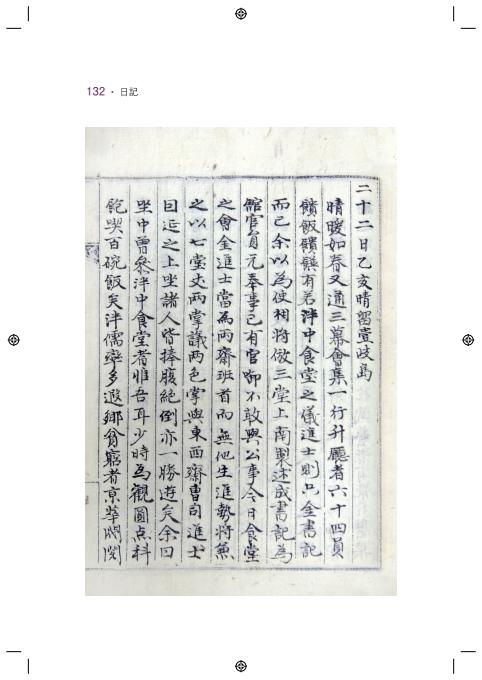 132 · 日記
二十二日乙亥晴留壹岐島
晴暖如春又通三幕會集一行升廳者六十四員
饋飯饋饌有若泮中食堂之儀進士則只金書記
而已余以為使相將做三堂上南製述成書記為
館官員元奉事已有官啣不敢與公事今日食堂
之會金進士當為兩齋班首而無他生進勢將兼
之以七堂丈兩掌議兩色掌與東西齋曹司進士
曰近之上坐諸人皆捧腹絕倒亦一勝遊矣余曰
坐中曾參泮中食堂者惟吾耳少時為觀圓点科
飽喫百碗飯矣泮儒率多遐鄉貧窮者京華閥閱